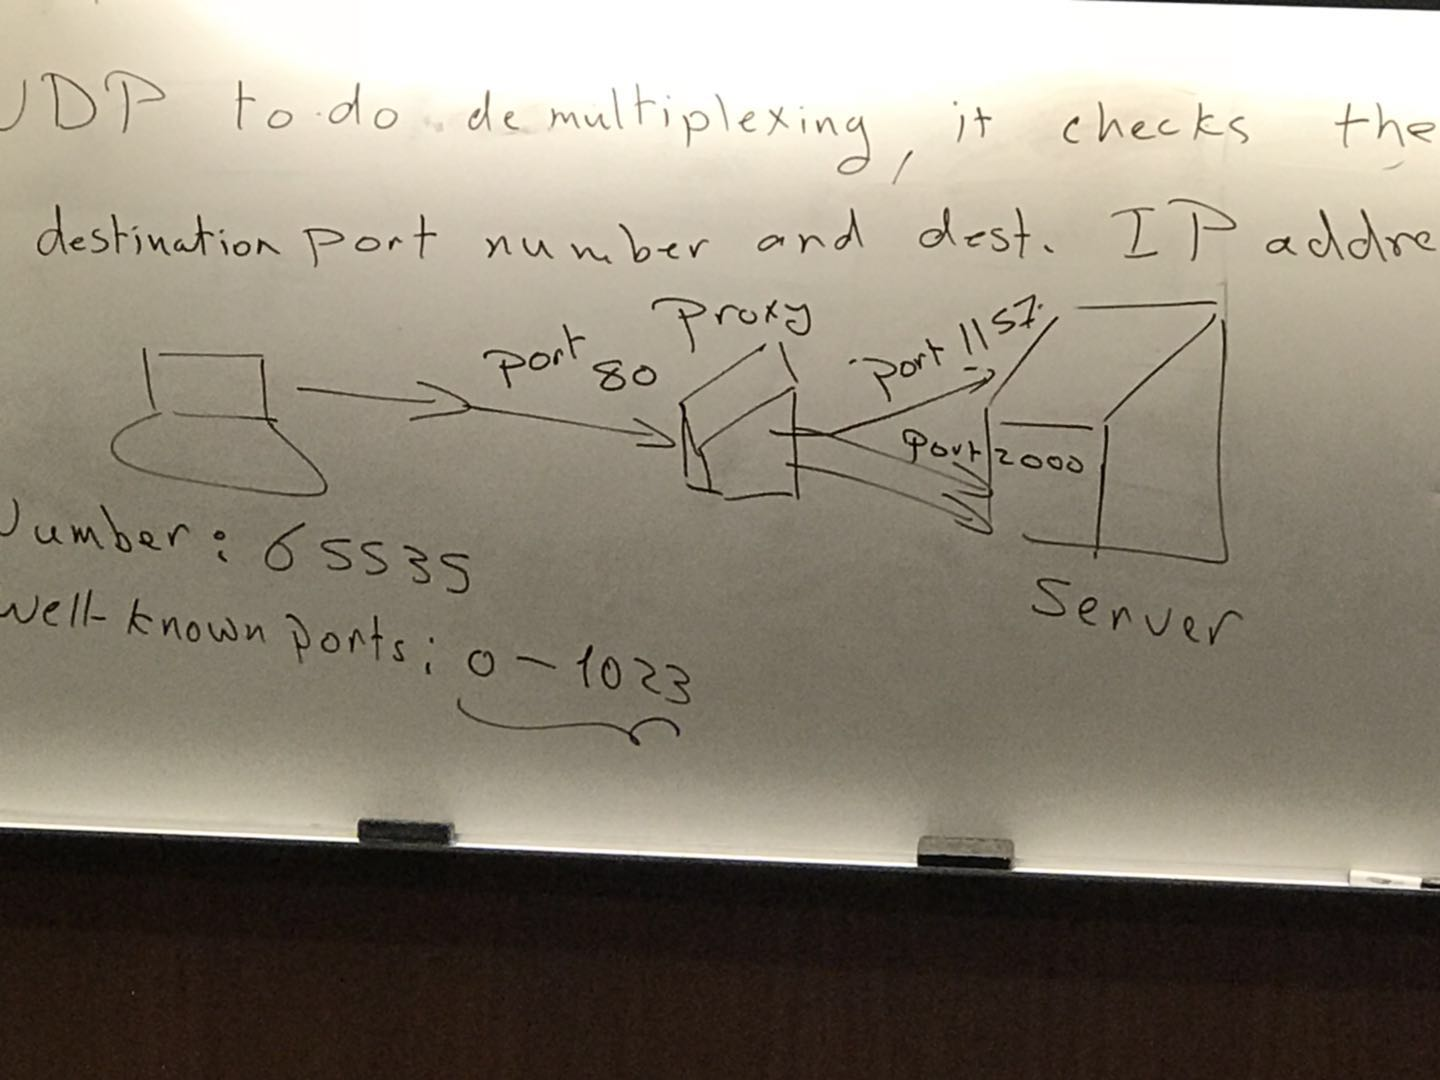 UDP to do demultiplexing, it checks the
destination port number and dest. IP addre
Proxy
port 80
port 1157
Port 2000
Number: 65535
well-known ports: 0-1023
Server